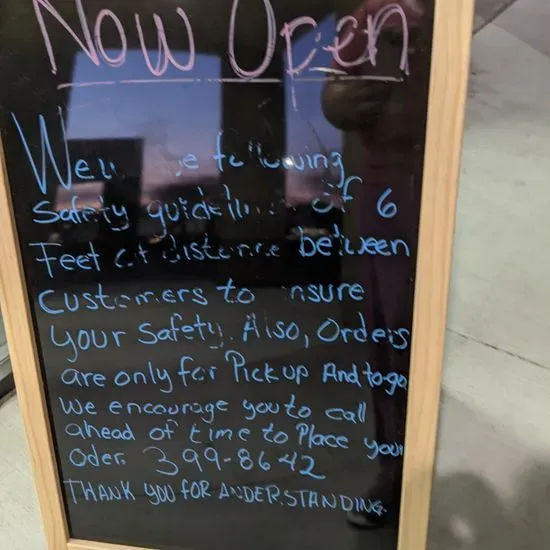 Now Open
following
Safety guidelines of 6
Feet of distance between
customers to insure
your Safety. Also, Orders
are only for Pickup And to-go
we encourage you to call
ahead of time to Place your
Oder. 399-8642
THANK YOU FOR ANDERSTANDING.